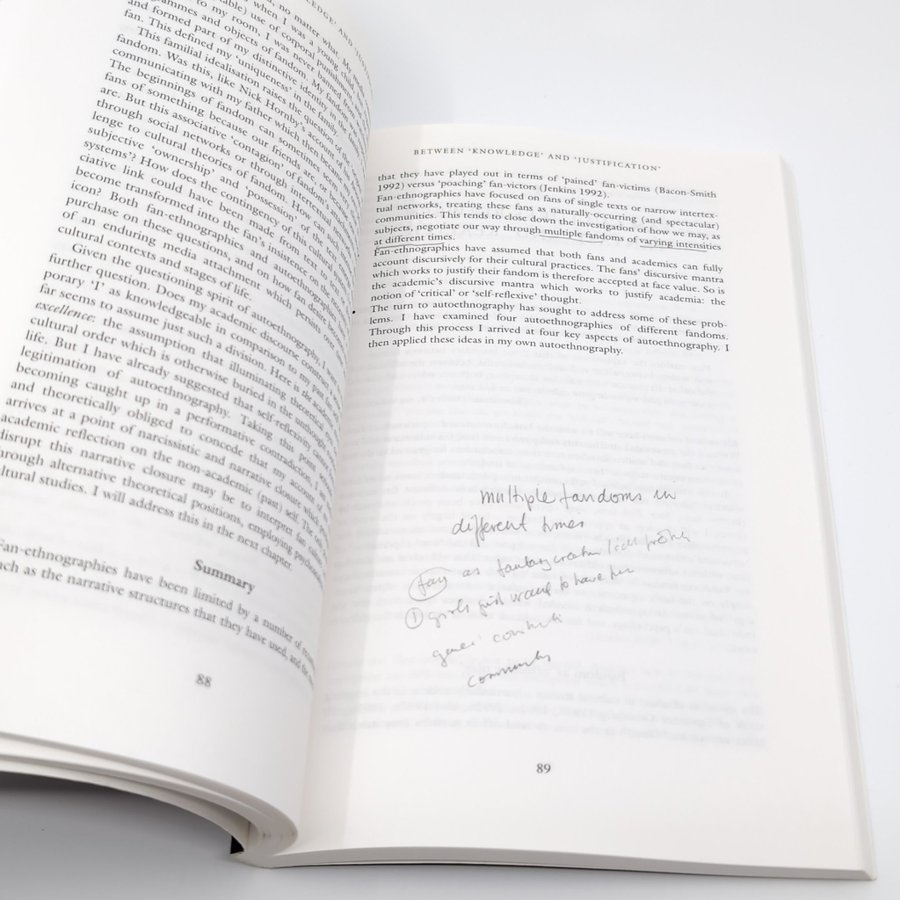 KNOWLEDGE' AND
no matter what. My
when I was a young child, and
able) use of corporal punishment
to my room, I was never banned from
programmes and objects of fandom. My fandom
and formed part of my distinctive identity in the
fan. This defined my 'uniqueness' in the family,
fandom. This familial idealisation raises the question of
communicating with my father which then became
Was this, like Nick Hornby's account of the
The beginnings of fandom can sometimes seem
fans of something because our friends are, or
are. But this associative 'contagion' of fandom
through social networks or through
lenge to cultural theories of fandom. How
subjective 'ownership' and 'possession'
systems'? How does the contingency of the
ciative link could have been made from this text to
become transformed into the fan's insistence on the
icon? Both fan-ethnographies and autoethnographies
purchase on these questions, and on how fan
of an enduring media attachment which persists over
cultural contexts and stages of life.
Given the questioning spirit of autoethnography, I
further question. Does my academic discourse construct
porary 'I' as knowledgeable in comparison to my past
far seems to assume just such a division. Here is the academic
excellence: the assumption that self-reflexivity can
cultural order which is otherwise buried in the unthought
life. But I have already suggested that
legitimation of autoethnography. Taking this point
becoming caught up in a performative contradiction, I
and theoretically obliged to concede that my account
arrives at a point of narcissistic and narrative closure which
academic reflection on the non-academic (past) self. The only
disrupt this narrative closure may be to interpret fan
through alternative theoretical positions, employing
cultural studies. I will address this in the next chapter.
Summary
Fan-ethnographies have been limited by a number of
such as the narrative structures that they have used, and the
88
BETWEEN 'KNOWLEDGE' AND 'JUSTIFICATION'
that they have played out in terms of 'pained' fan-victims (Bacon-Smith
1992) versus 'poaching' fan-victors (Jenkins 1992).
Fan-ethnographies have focused on fans of single texts or narrow intertex-
tual networks, treating these fans as naturally-occurring (and spectacular)
communities. This tends to close down the investigation of how we may, as
subjects, negotiate our way through multiple fandoms of varying intensities
at different times.
Fan-ethnographies have assumed that both fans and academics can fully
account discursively for their cultural practices. The fans' discursive mantra
which works to justify their fandom is therefore accepted at face value. So is
the academic's discursive mantra which works to justify academia: the
notion of 'critical' or 'self-reflexive' thought.
The turn to autoethnography has sought to address some of these prob-
lems. I have examined four autoethnographies of different fandoms.
Through this process I arrived at four key aspects of autoethnography. I
then applied these ideas in my own autoethnography.
multiple fandoms in
different times
as fantasy creation
① girls just want to have fun
community
89